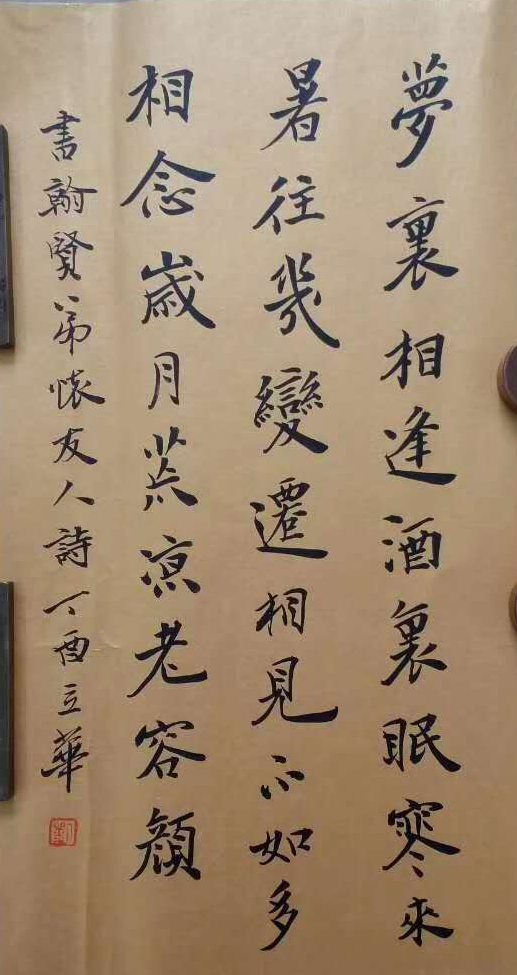 夢裏相逢酒裏眠寒來
暑往幾變遷相見不如多
相念歲月荒涼老容顏
書翰賢弟懷友人詩丁酉立華